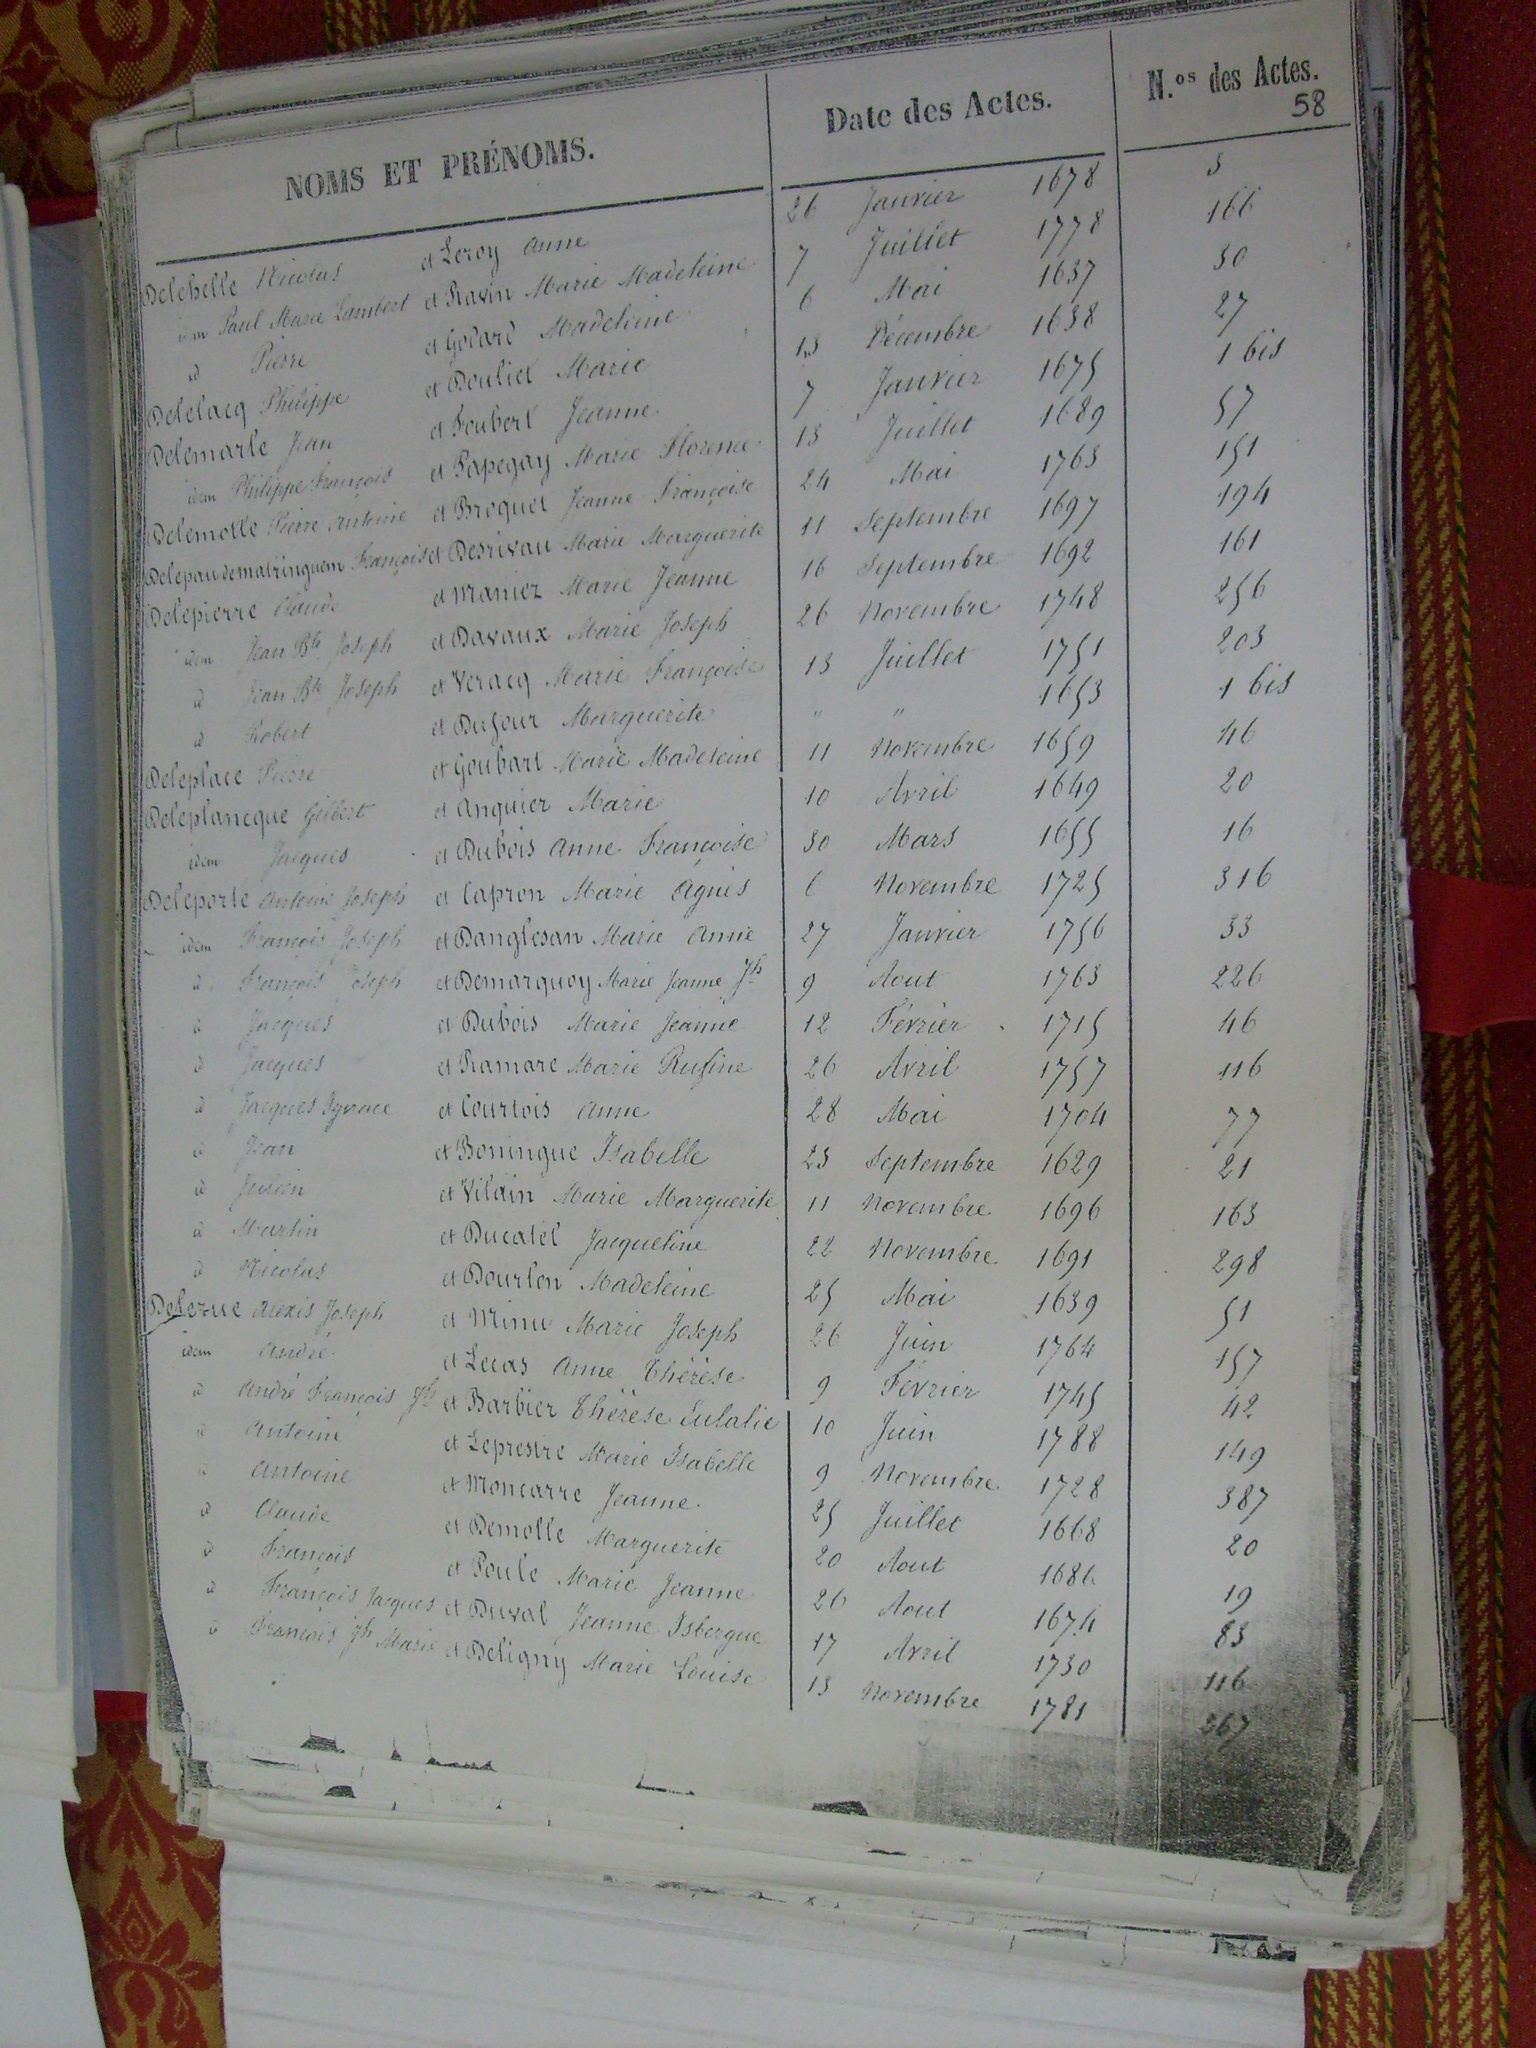 NOMS ET PRÉNOMS. Date des Actes. N.os des Actes.
58
Delehelle Nicolas et Leroy Anne 26 Janvier 1678 5
idem Paul Marie Lambert et Ravin Marie Madeleine 7 Juillet 1778 166
id Pierre et Godard Madeleine 6 Mai 1637 30
Delelacq Philippe et Douliet Marie 13 Décembre 1638 27
Delemarle Jean et Foubert Jeanne 7 Janvier 1675 1 bis
idem Philippe François et Papegay Marie Florence 13 Juillet 1689 57
Delemotte Pierre Antoine et Broquet Jeanne Françoise 24 Mai 1763 151
Delepau de matringuem François et Desrivau Marie Marguerite 11 Septembre 1697 194
Delepierre Claude et Maniez Marie Jeanne 16 Septembre 1692 161
idem Jean Bte Joseph et Davaux Marie Joseph 26 Novembre 1748 256
id Jean Bte Joseph et Veracq Marie Françoise 13 Juillet 1751 203
id Robert et Dufour Marguerite " " 1653 1 bis
Deleplace Pierre et Goubart Marie Madeleine 11 Novembre 1659 46
Deleplancque Gilbert et Anquier Marie 10 Avril 1649 20
idem Jacques et Dubois Anne Françoise 30 Mars 1655 16
Deleporte Antoine Joseph et Capron Marie Agnès 6 Novembre 1725 316
idem François Joseph et Danglesan Marie Anne 27 Janvier 1756 33
id François Joseph et Demarquoy Marie Jeanne Jh 9 Aout 1763 226
id Jacques et Dubois Marie Jeanne 12 Février 1715 46
id Jacques et Ramare Marie Rufine 26 Avril 1757 116
id Jacques Ignace et Courtois Anne 28 Mai 1704 77
id Jean et Boningue Isabelle 23 Septembre 1629 21
id Julien et Vilain Marie Marguerite 11 Novembre 1696 163
id Martin et Ducatel Jacqueline 22 Novembre 1691 298
id Nicolas et Dourlen Madeleine 25 Mai 1639 51
Delerue Alexis Joseph et Minu Marie Joseph 26 Juin 1764 157
idem André et Lecas Anne Thérèse 9 Février 1745 42
id André François Jh et Barbier Thérèse Eulalie 10 Juin 1788 149
id Antoine et Leprestre Marie Isabelle 9 Novembre 1728 387
id Antoine et Moncarre Jeanne 25 Juillet 1668 20
id Claude et Demolle Marguerite 20 Aout 1686 19
id François et Poule Marie Jeanne 26 Aout 1674 83
id François Jacques et Duval Jeanne Isbergue 17 Avril 1730 116
id François Jh Marie et Deligny Marie Louise 13 Novembre 1781 267